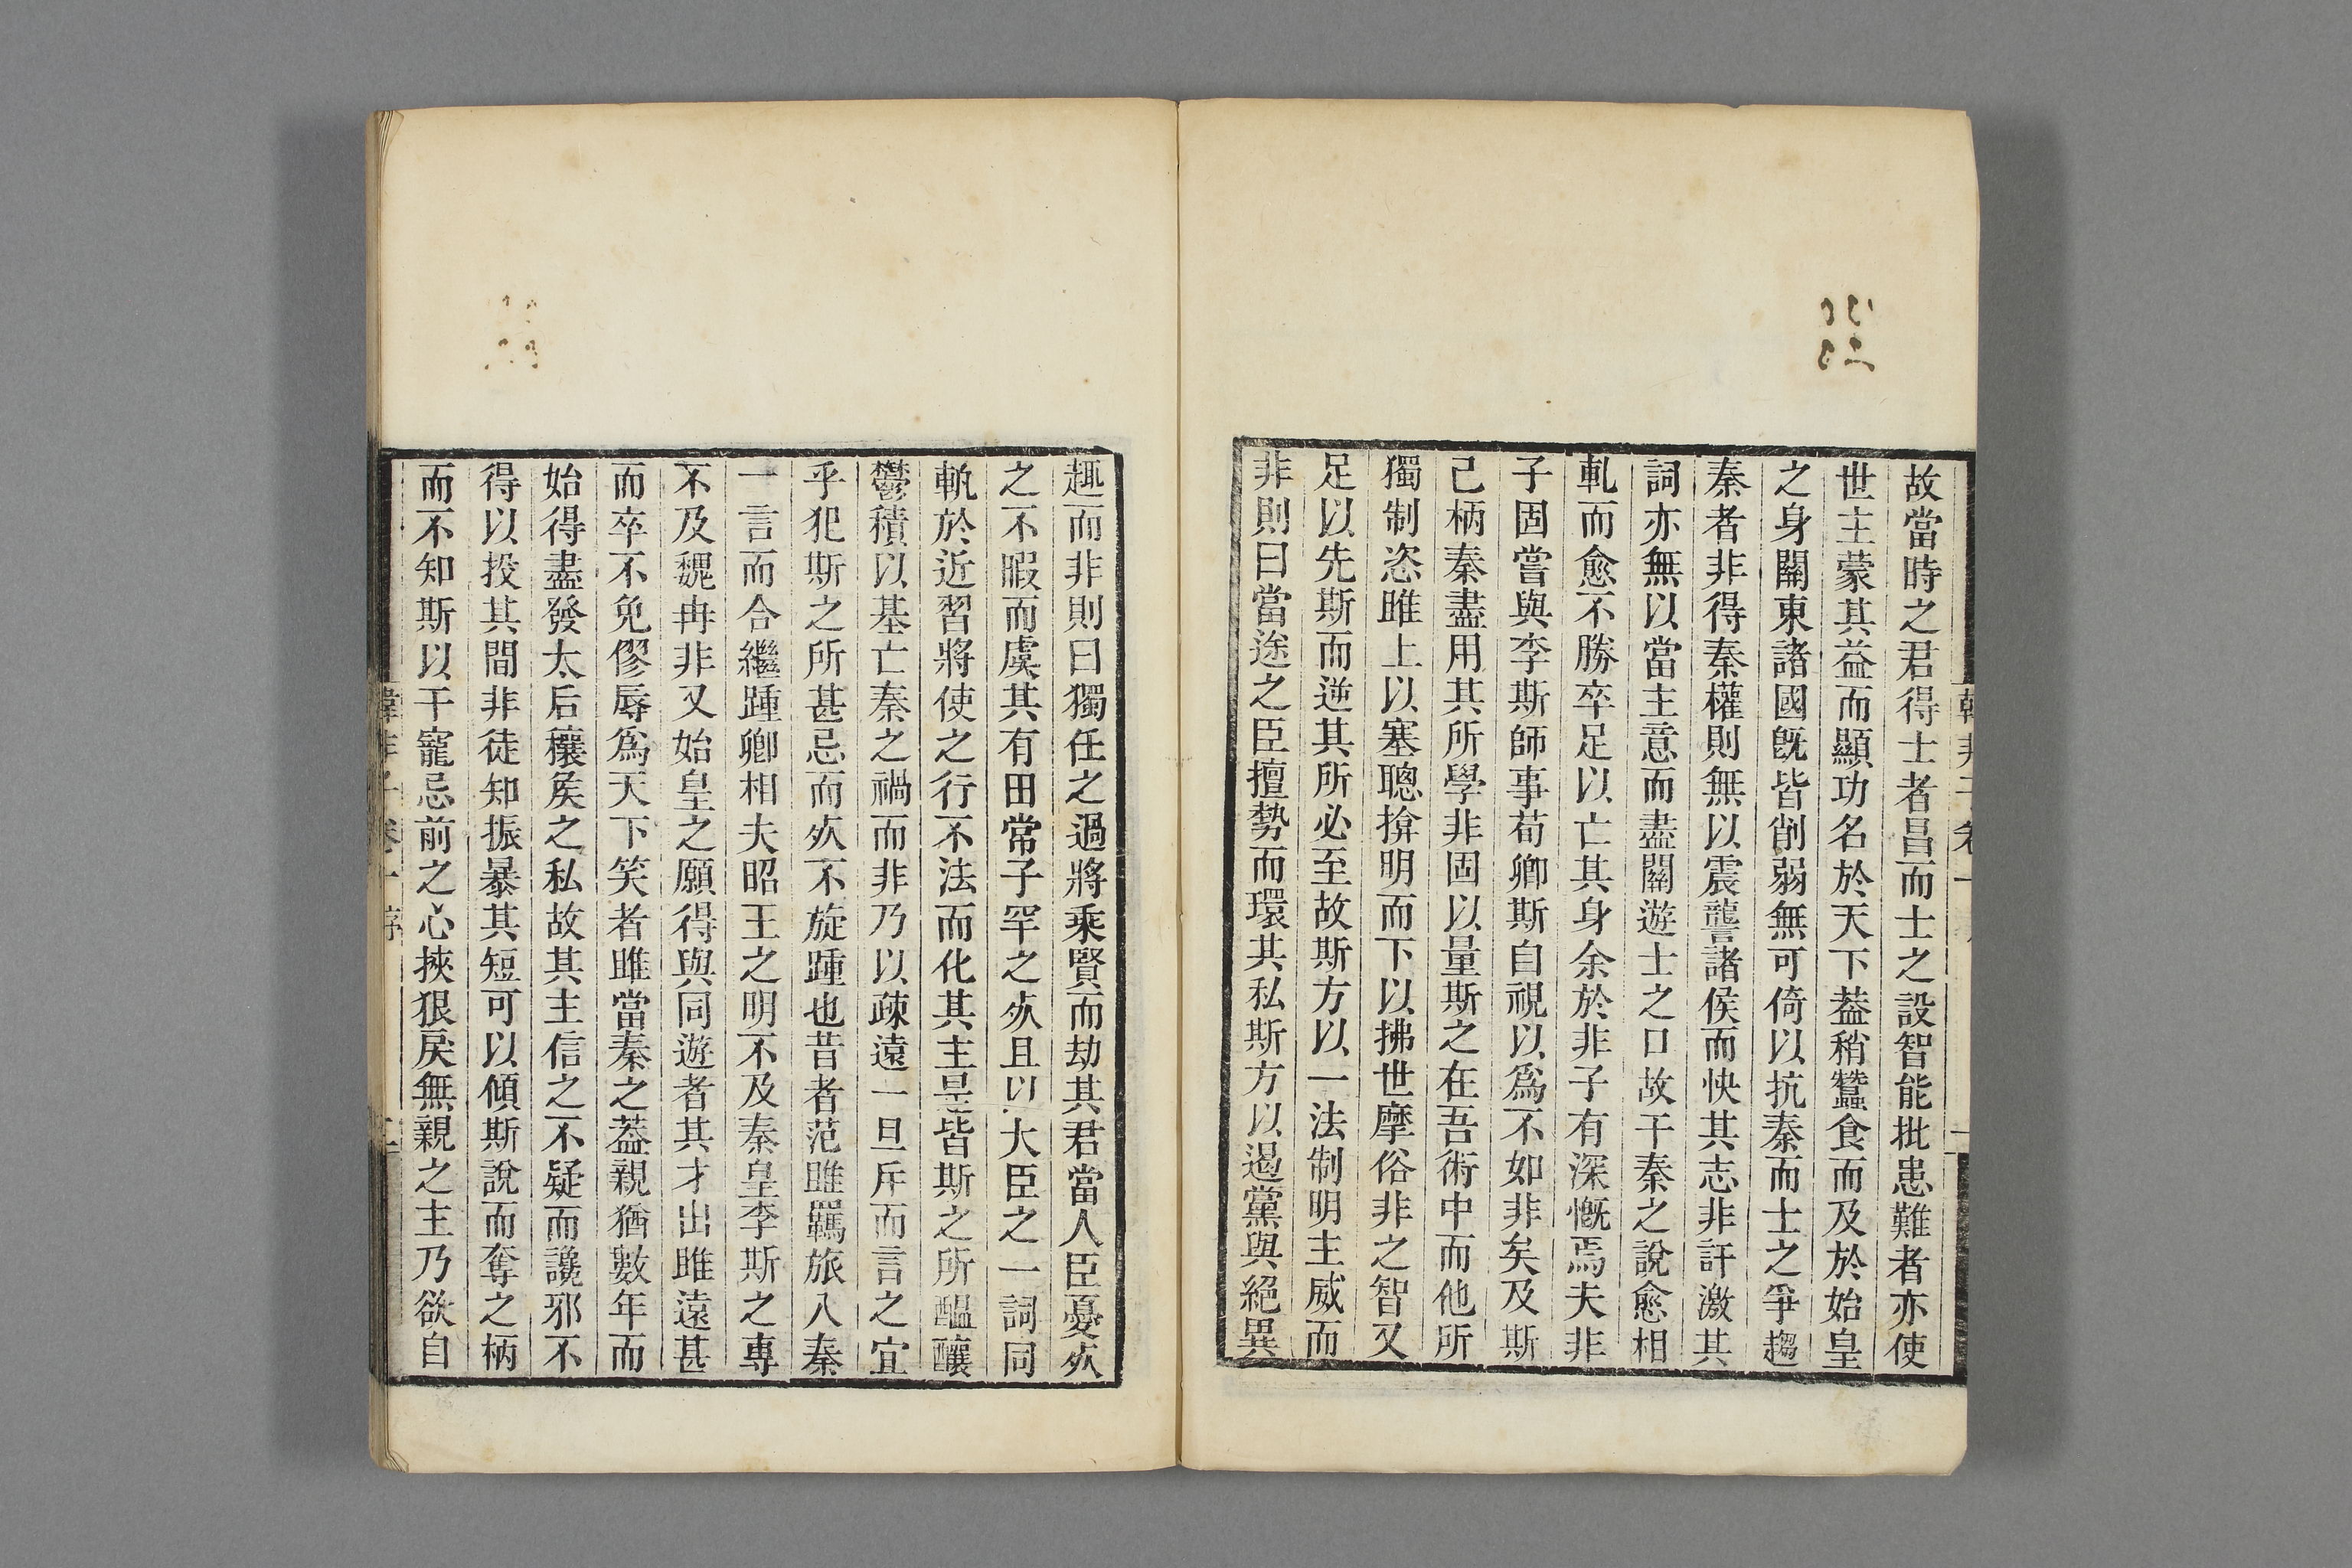 故當時之君得士者昌而士之設智能批患難者亦使
世主蒙其益而顯功名於天下葢稍蠶食而及於始皇
之身關東諸國旣皆削弱無可倚以抗秦而士之爭趨
秦者非得秦權則無以震讋諸侯而快其志非訐激其
詞亦無以當主意而盡關遊士之口故干秦之說愈相
軋而愈不勝卒足以亡其身余於非子有深慨焉夫非
子固嘗與李斯師事荀卿斯自視以爲不如非矣及斯
己柄秦盡用其所學非固以量斯之在吾術中而他所
獨制恣睢上以塞聰揜明而下以拂世摩俗非之智又
足以先斯而逆其所必至故斯方以一法制明主威而
非則曰當途之臣擅勢而環其私斯方以遏黨與絕異
趣而非則曰獨任之過將乘賢而劫其君當人臣憂死
之不暇而虞其有田常子罕之死且以大臣之一詞同
軌於近習將使之行不法而化其主是皆斯之所醞釀
鬱積以基亡秦之禍而非乃以疎遠一旦斥而言之宜
乎犯斯之所甚忌而死不旋踵也昔者范雎羈旅入秦
一言而合繼踵卿相夫昭王之明不及秦皇李斯之專
不及魏冉非又始皇之願得與同遊者其才出雎遠甚
而卒不免僇辱爲天下笑者雎當秦之葢親猶數年而
始得盡發太后穰矦之私故其主信之不疑而讒邪不
得以投其間非徒知振暴其短可以傾斯說而奪之柄
而不知斯以干寵忌前之心挾狠戾無親之主乃欲自
韓非子卷一 序 二